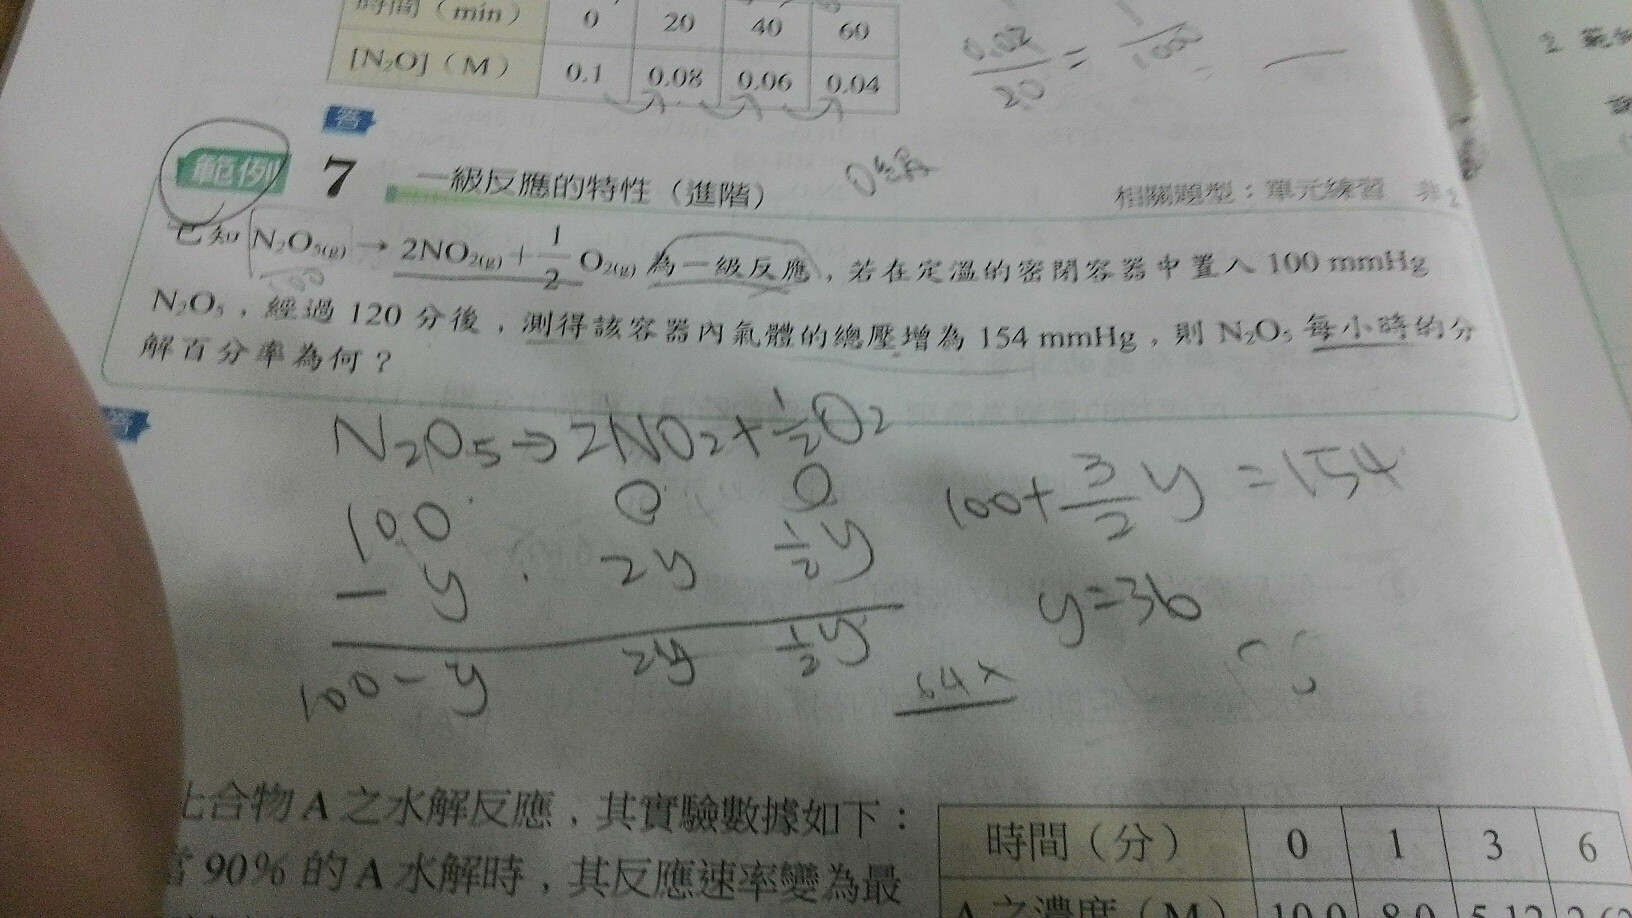 時間（min） 0 20 40 60
[N₂O]（M） 0.1 0.08 0.06 0.04
0.02/20 = 1/1000
答
範例 7 一級反應的特性（進階） 0級
相關題型：單元練習
已知 N₂O₅(g) → 2NO₂(g) + 1/2 O₂(g) 為一級反應，若在定溫的密閉容器中置入 100 mmHg
100
N₂O₅，經過 120 分後，測得該容器內氣體的總壓增為 154 mmHg，則 N₂O₅ 每小時的分
解百分率為何？
答
N₂O₅ → 2NO₂ + 1/2 O₂
100 0 0
100 + 3/2 y = 154
- y 2y 1/2 y
y = 36
100 - y 2y 1/2 y
64
合物 A 之水解反應，其實驗數據如下：
當 90% 的 A 水解時，其反應速率變為最
時間（分） 0 1 3 6
A 之濃度（M） 10.0 8.0 5.12